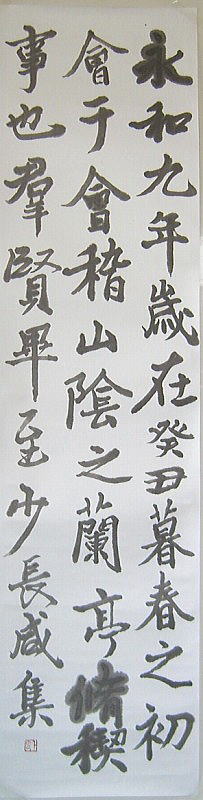 永和九年歲在癸丑暮春之初
會于會稽山陰之蘭亭脩稧
事也羣賢畢至少長咸集